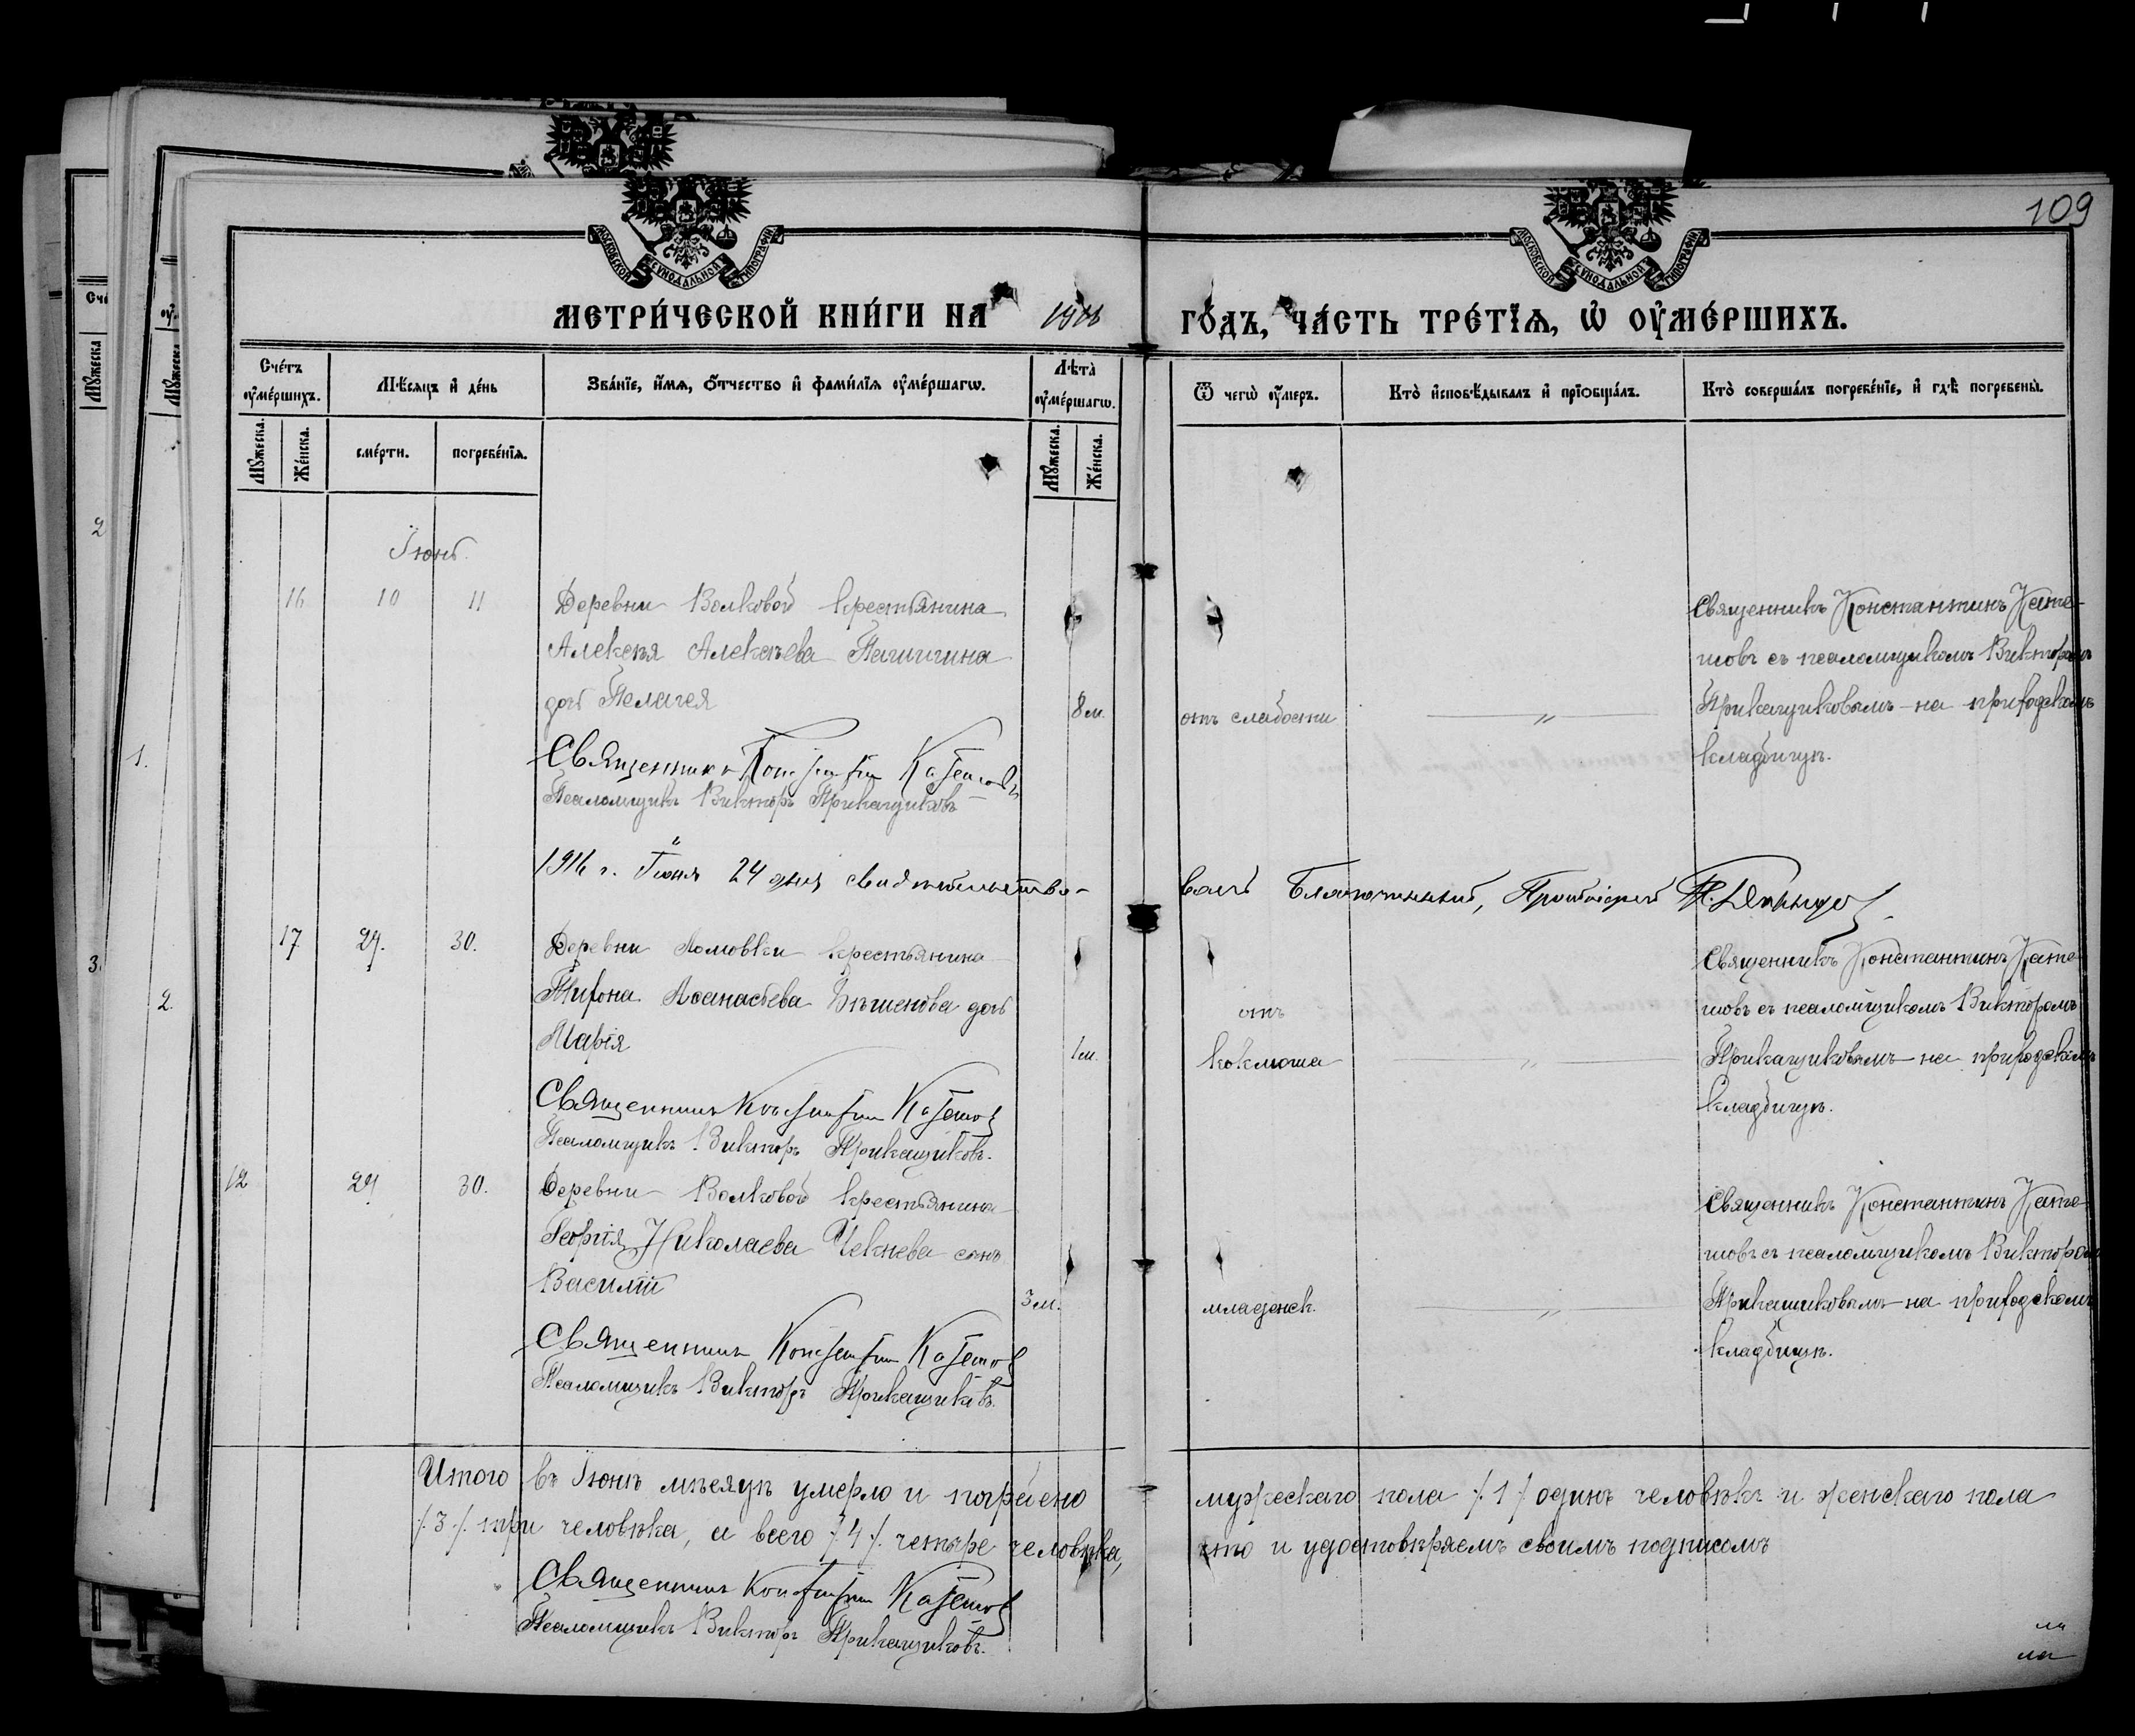 109
МОСКОВСКОЙ СѴНОДАЛЬНОЙ ТИПОГРАФІИ
МОСКОВСКОЙ СѴНОДАЛЬНОЙ ТИПОГРАФІИ
МЕТРИ́ЧЕСКОЙ КНИ́ГИ НА 1916 ГО́ДЪ, ЧА́СТЬ ТРЕ́ТЇѦ, Ѡ҆ ОУ҆МЕ́РШИХЪ.
Сче́тъ оу҆ме́ршихъ.
Мѣ́сѧцъ и҆ де́нь
Зва́нїе, и҆́мѧ, ѻ҆́тчество и҆ фами́лїѧ оу҆ме́ршагѡ.
Лѣта̀ оу҆ме́ршагѡ.
Ѿ чегѡ̀ оу҆́меръ.
Кто̀ и҆сповѣ́дывалъ и҆ прїѻбща́лъ.
Кто̀ соверша́лъ погребе́нїе, и҆ гдѣ̀ погребены̀.
Мꙋ́жеска.
Же́нска.
сме́рти.
погребе́нїѧ.
Мꙋ́жеска.
Же́нска.
Іюнь.
16 10 11 Деревни Волковой крестьянина
Алексѣя Алексѣева Пашигина
дочь Пелагея 8 м. отъ слабости — „ —
Священникъ Константинъ Кате-
шовъ съ псаломщикомъ Викторомъ
Прикащиковымъ на приходскомъ
кладбищѣ.
Священникъ Константин Катешовъ
Псаломщикъ Викторъ Прикащиковъ
1916 г. Іюня 24 дня свидѣтельство-
валъ Благочинный, Протоіерей
17 29. 30. Деревни Ломовки крестьянина
Трифона Аѳанасьева дочь
Марія 1 м. отъ
коклюша — „ —
Священникъ Константинъ Кате-
шовъ съ псаломщикомъ Викторомъ
Прикащиковымъ на приходскомъ
кладбищѣ.
Священник Константин Катешов
Псаломщикъ Викторъ Прикащиковъ.
12 29 30. Деревни Волковой крестьянина
Георгія Николаева Чекнева сынъ
Василій 3 м. младенск. — „ —
Священникъ Константинъ Кате-
шовъ съ псаломщикомъ Викторомъ
Прикащиковымъ на приходскомъ
кладбищѣ.
Священник Константин Катешов
Псаломщикъ Викторъ Прикащиковъ.
Итого въ Іюнѣ мѣсяцѣ умерло и погребено мужескаго пола /.1./ одинъ человѣкъ и женскаго пола
/.3./. три человѣка, а всего /.4./. четыре человѣка, что и удостовѣряемъ своимъ подписомъ
Священник Константин Катешов
Псаломщикъ Викторъ Прикащиковъ.